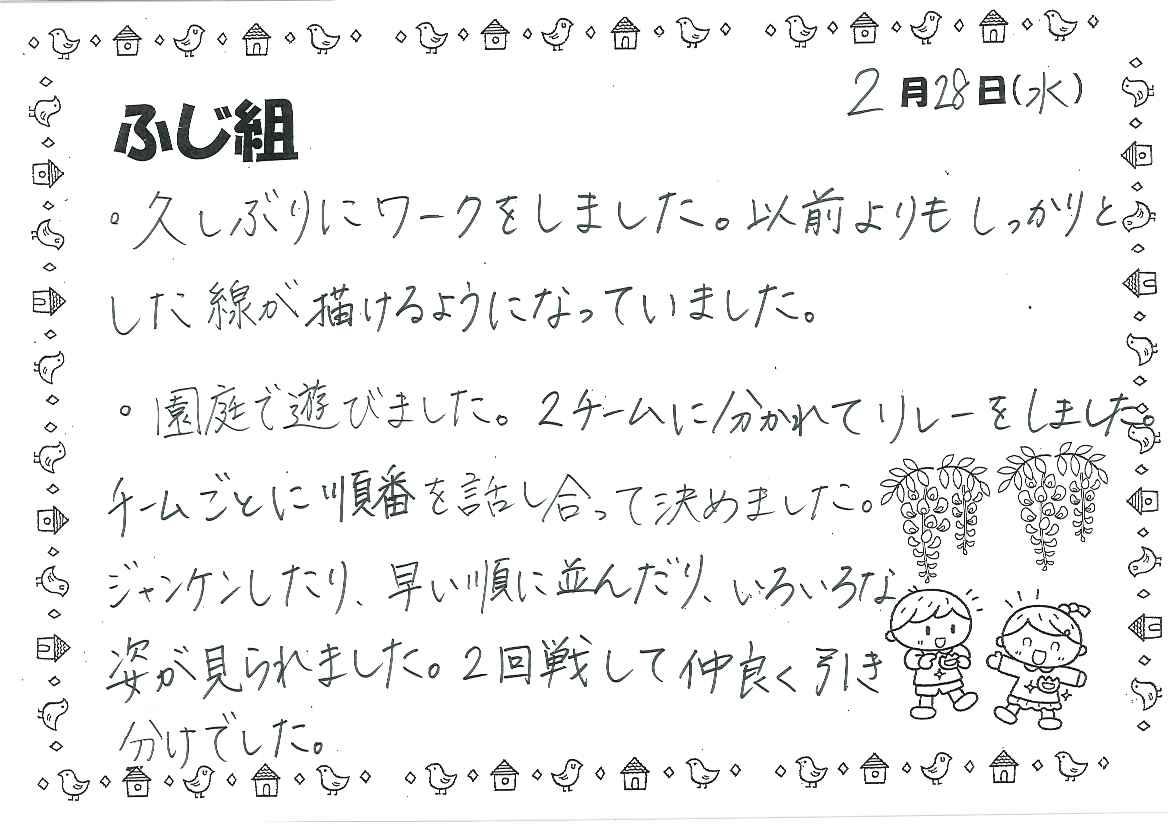 2月28日(水)
ふじ組
・久しぶりにワークをしました。以前よりもしっかりと
した線が描けるようになっていました。
・園庭で遊びました。2チームに分かれてリレーをしました。
チームごとに順番を話し合って決めました。
ジャンケンしたり、早い順に並んだり、いろいろな
姿が見られました。2回戦して仲良く引き
分けでした。